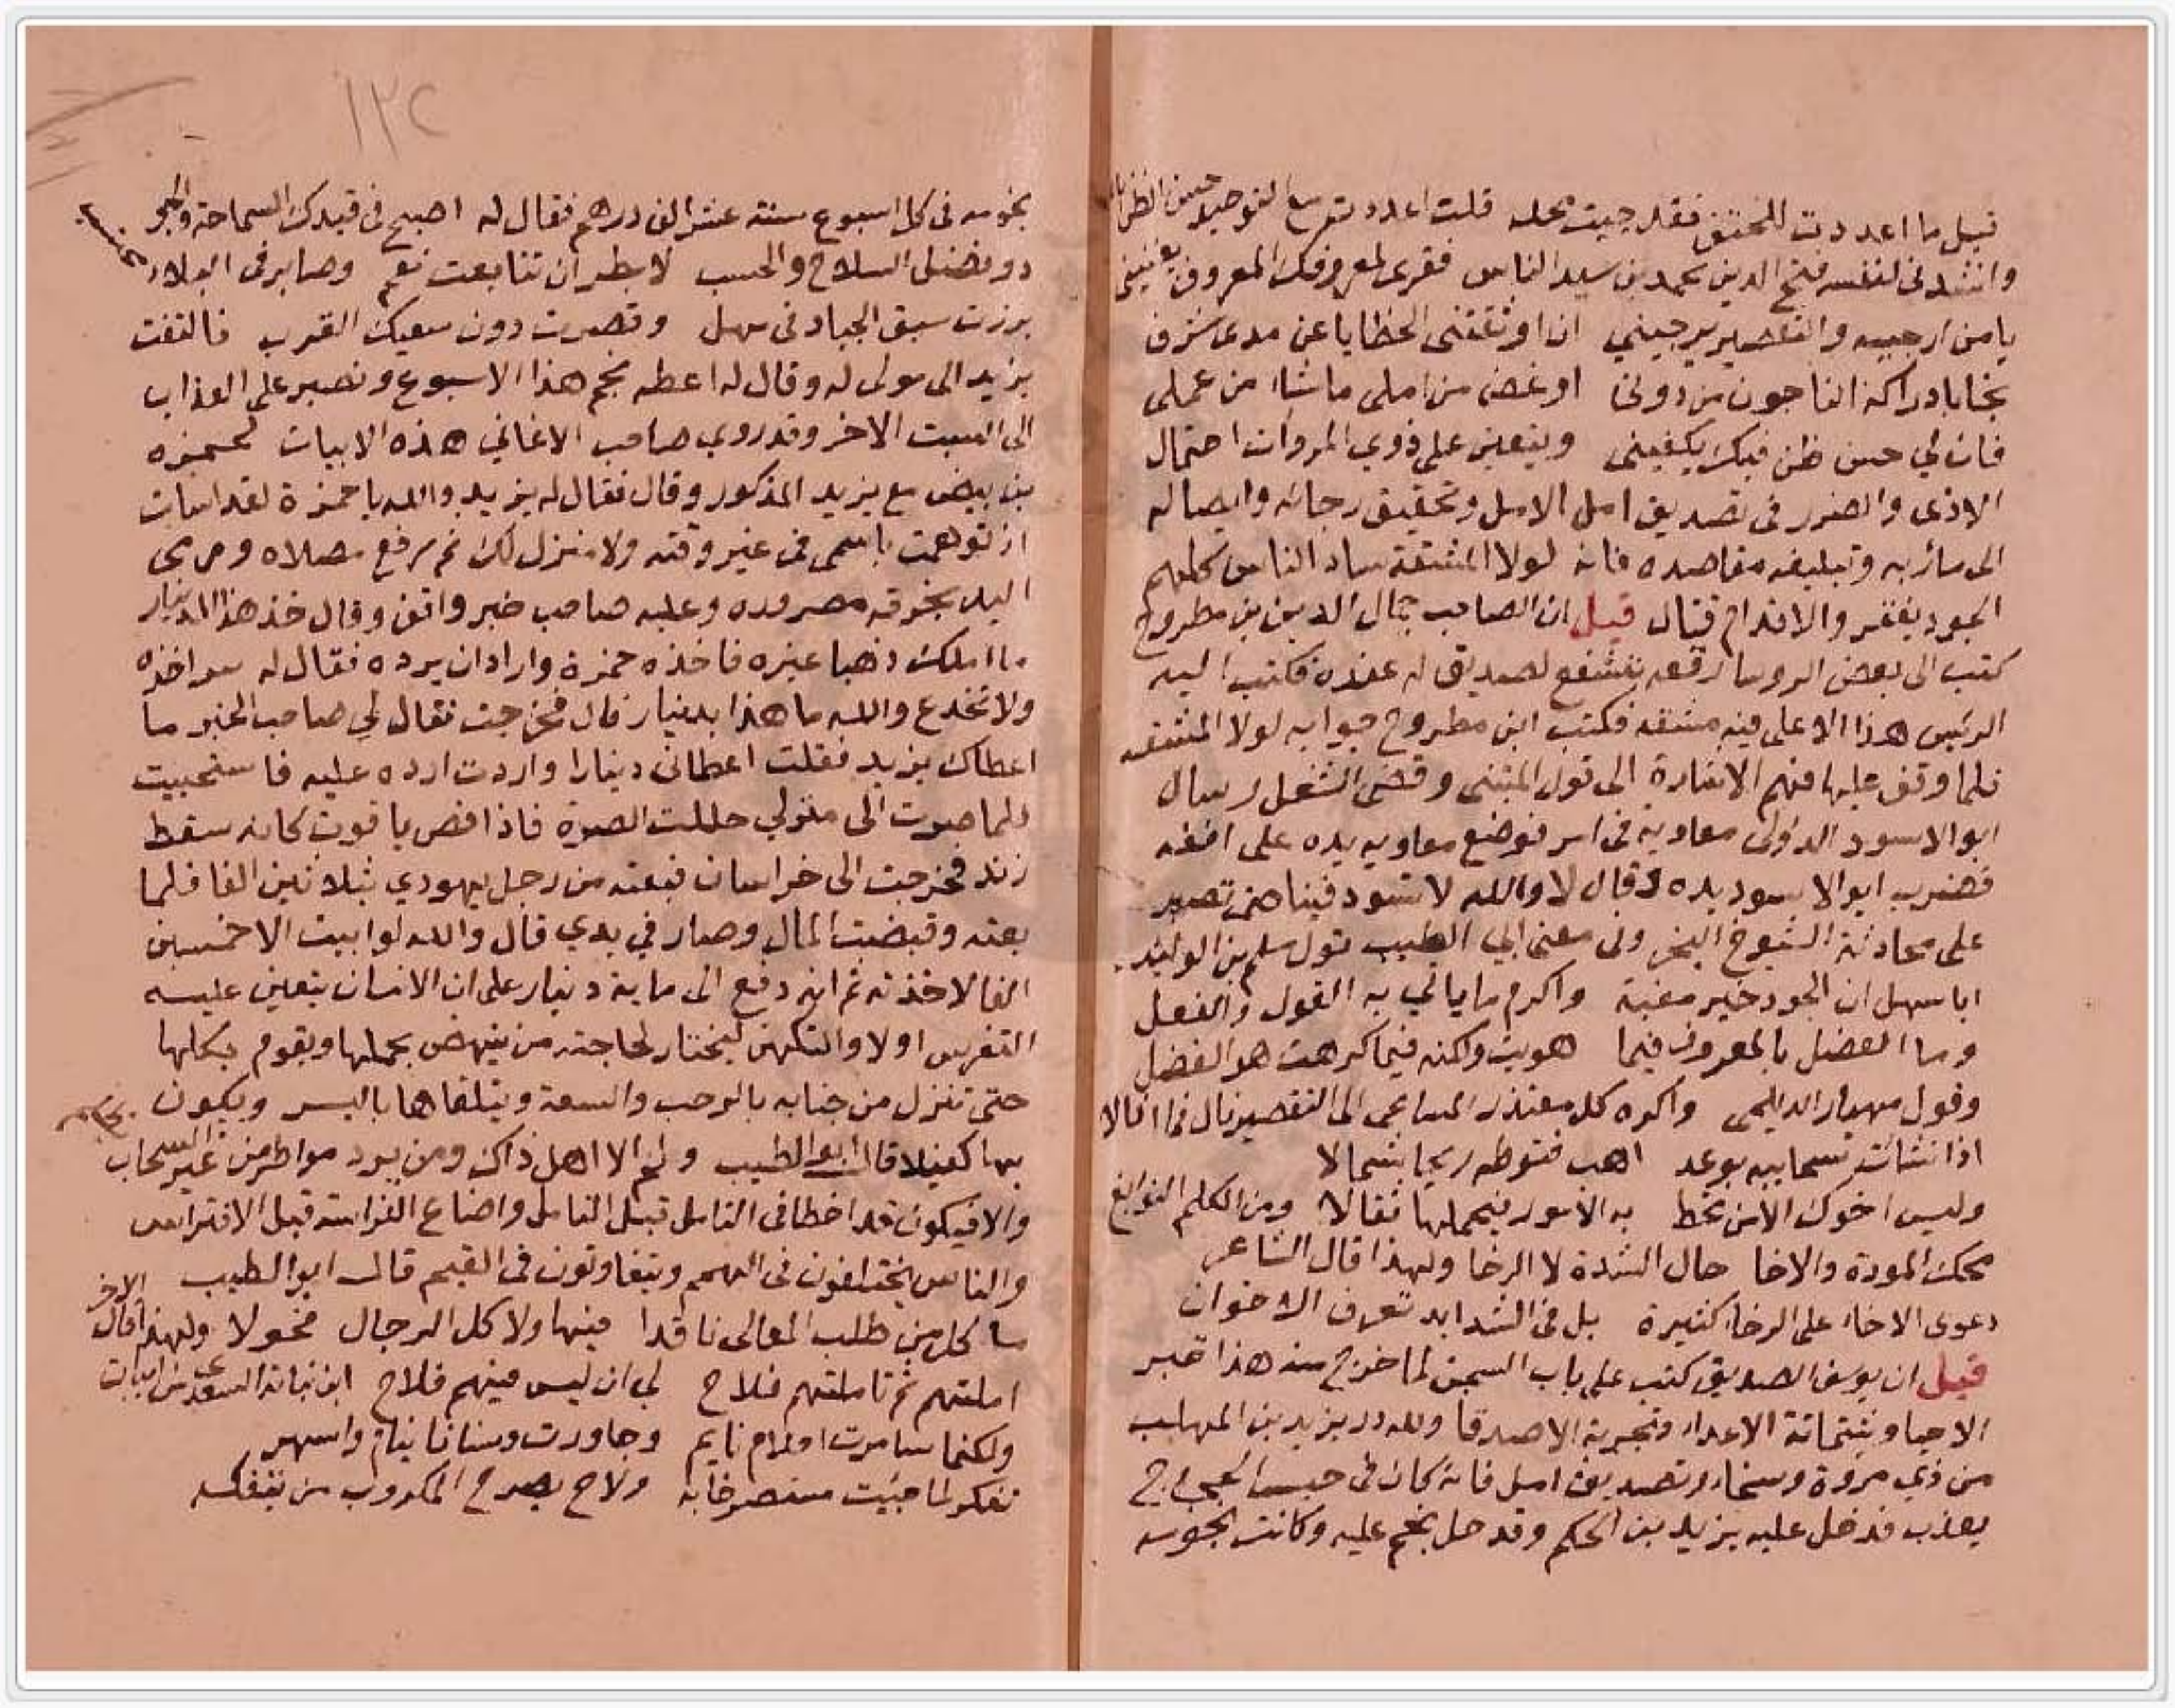 قيل ما اعددت للحتف فقد جيت محله قلت اعددت مع التوحيد حسن الظن
وانشدنى لنفسه فتح الدين محمد بن سيد الناس فقرى لمعروفك المعروف يغنينى
يا من ارجيه والتقصير يرجينى ان اوثقتنى الخطايا عن مدى شرف
نجا بادراكه الناجون من دونى او غض من املى ما شاا من عملى
فان لي حسن ظن فيك يكفينى ويتعين على ذوي المروات احتمال
الاذى والضرر فى تصديق امل الامل وتحقيق رجائه وايصاله
الى مأربه وتبليغه مقاصده فانه لولا المشقة ساد الناس كلهم
الجود يفقر والاقدام قتال قيل ان الصاحب جمال الدين بن مطروح
كتب الى بعض الروسا رقعه يتشفع لصديق له عنده فكتب اليه
الرئيس هذا الا على فيه مشقه فكتب ابن مطروح جوابه لولا المشقه
فلما وقف عليها فهم الاشارة الى قول المتنبى وقضى الشغل وسال
ابو الاسود الدؤلى معاويه فى امر فوضع معاويه يده على انفه
فضرب ابو الاسود يده وقال لا والله لا تسود فينا حتى تصبر
على محادثة الشيوخ البخر وفى معنى ابي الطيب قول مسلم بن الوليد
ابا سهل ان الجود خير مغبة واكرم ما ياتي به القول والفعل
وما الفضل بالمعروف فيما هويت ولكنه فيما كرهت هو الفضل
وقول مهيار الديلمى واكره كل معتذر المساعى الى التقصير نال فما انالا
اذا نشأت سحايبه بوعد اهب قنوطه ريحا شمالا
وليس اخوك الا من تحط به الامور فيحملها ثقالا ومن الكلم النوابغ
محك المودة والاخا حال الشدة لا الرخا ولهذا قال الشاعر
دعوى الاخاء على الرخاء كثيرة بل فى الشدايد تعرف الاخوان
قيل ان يوسف الصديق كتب على باب السجن لما خرج منه هذا قبر
الاحيا وشماتة الاعداء وتجربة الاصدقا ولله در يزيد بن المهلب
من ذي مروة وسخاء وتصديق امل فانه كان فى حبس الحجاج
يعذب فدخل عليه يزيد بن الحكم وقد حل نجم عليه وكانت نجومه
١٣٢
نجومه فى كل اسبوع ستة عشر الف درهم فقال له اصبح فى قيدك السماحة والجو
دو فضل الصلاح والحسب لا بطر ان تتابعت نعم وصابر فى البلاء محتسب
برزت سبق الجياد فى مهل وقصرت دون سعيك القرب فالتفت
يزيد الى مولى له وقال له اعطه نجم هذا الاسبوع ونصبر على العذاب
الى السبت الاخر وقد روى صاحب الاغاني هذه الابيات لحمزه
بن بيض مع يزيد المذكور وقال فقال له يزيد والله يا حمزة لقد اسات
اذ نوهت باسمى فى غير وقته ولا منزل لك ثم رفع مصلاه ورمى
اليه بخرقه مصروره وعليه صاحب خبر واقف وقال خذ هذا الدينار
ما املك ذهبا غيره فاخذه حمزة واراد ان يرده فقال له سرا خذه
ولا تخدع والله ما هذا بدينار قال فخرجت فقال لي صاحب الخبر ما
اعطاك يزيد فقلت اعطانى دينارا واردت ارده عليه فاستحييت
فلما صرت الى منزلي حللت الصرة فاذا فص ياقوت كانه سقط
زند فخرجت الى خراسان فبعته من رجل يهودي بثلاثين الفا فلما
بعته وقبضت المال وصار في يدي قال والله لو ابيت الا خمسين
الفا لاخذته ثم انه دفع الى ماية دينار على ان الانسان يتعين عليه
التفرس اولا والتكهن ليختار لحاجته من ينهض بحملها ويقوم بكلها
حتى تنزل من جنابه بالرحب والسعة ويتلقاها باليسر ويكون
بها كفيلا قال ابو الطيب ولم الا اهل ذاك ومن يرد مواطر من غير السحاب
والا فيكون قد اخطا فى التامل قبل التامل واضاع الفراسة قبل الافتراس
والناس يختلفون فى الهمم ويتفاوتون فى القيم قال ابو الطيب
ما كل من طلب المعالى نافذا فيها ولا كل الرجال فحولا ولهذا قال الاخر
املتهم ثم تاملتهم فلاح لي ان ليس فيهم فلاح ابن نباتة السعدى من ابيات
ولكنما سامرت اولهم نايم وجاورت وسنانا ينام واسهر
تفكر لما جئت مستصرخا به ولاح يصرح المكروب من يتفكر